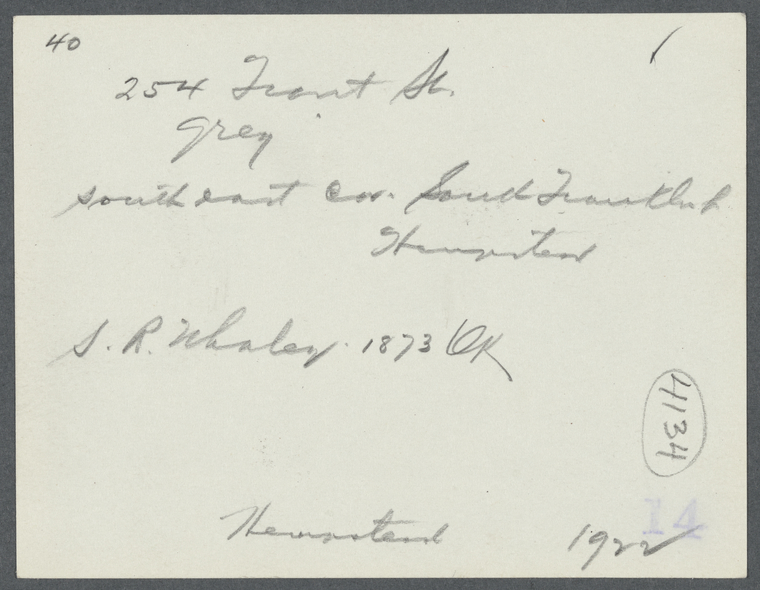 40
254 Front St.
Grey
southeast cor. South Franklin &
Hempstead
S. R. Whaley. 1873 OK
4134
14
Hempstead 1922